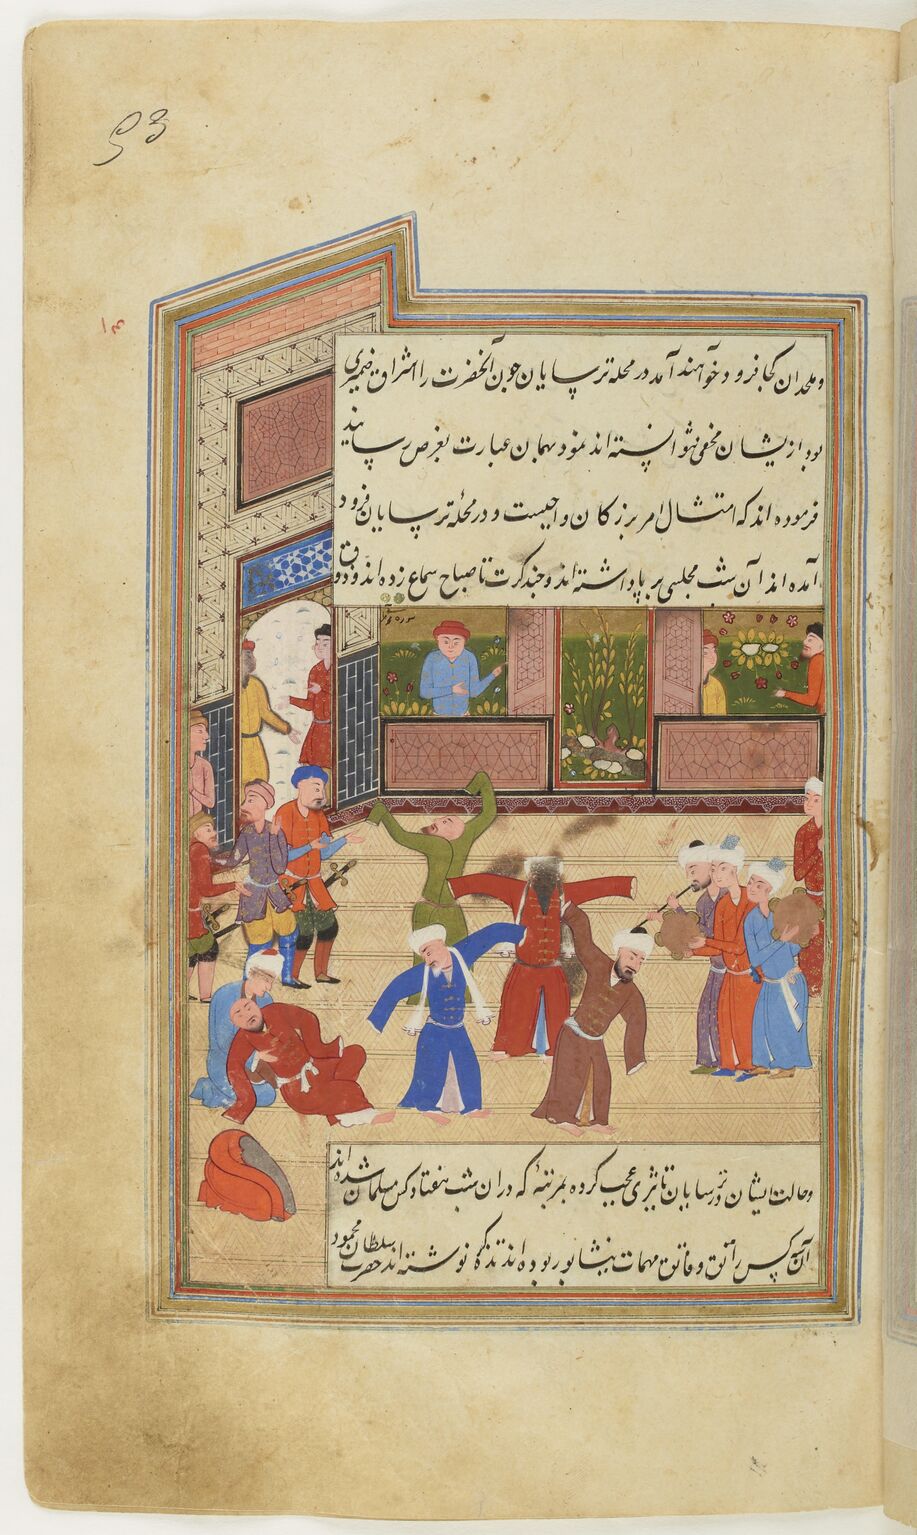 53
۱۳
و ملحدان کجا فرود خواهند آمد در محله ترسایان چون آنحضرت را اشراق ضمیری
بود از یشان مخفی نتوانسته اند نمود بهمان عبارت بعرض رسانید
فرموده اند که امتثال امر بزرکان واجبست و در محله ترسایان فرود
آمده اند آن شب مجلسی بر پا داشته اند و چند کرت تا صباح سماع زده اند و ذوق
وحالت ایشان در ترسایان تاثیری عجب کرده بمرتبه که در ان شب هفتاد کس مسلمان شده اند
آن سه کس راتق و فاتق مهمات نیشابور بوده اند تذکره نوشته اند حضرت سلطان محمود